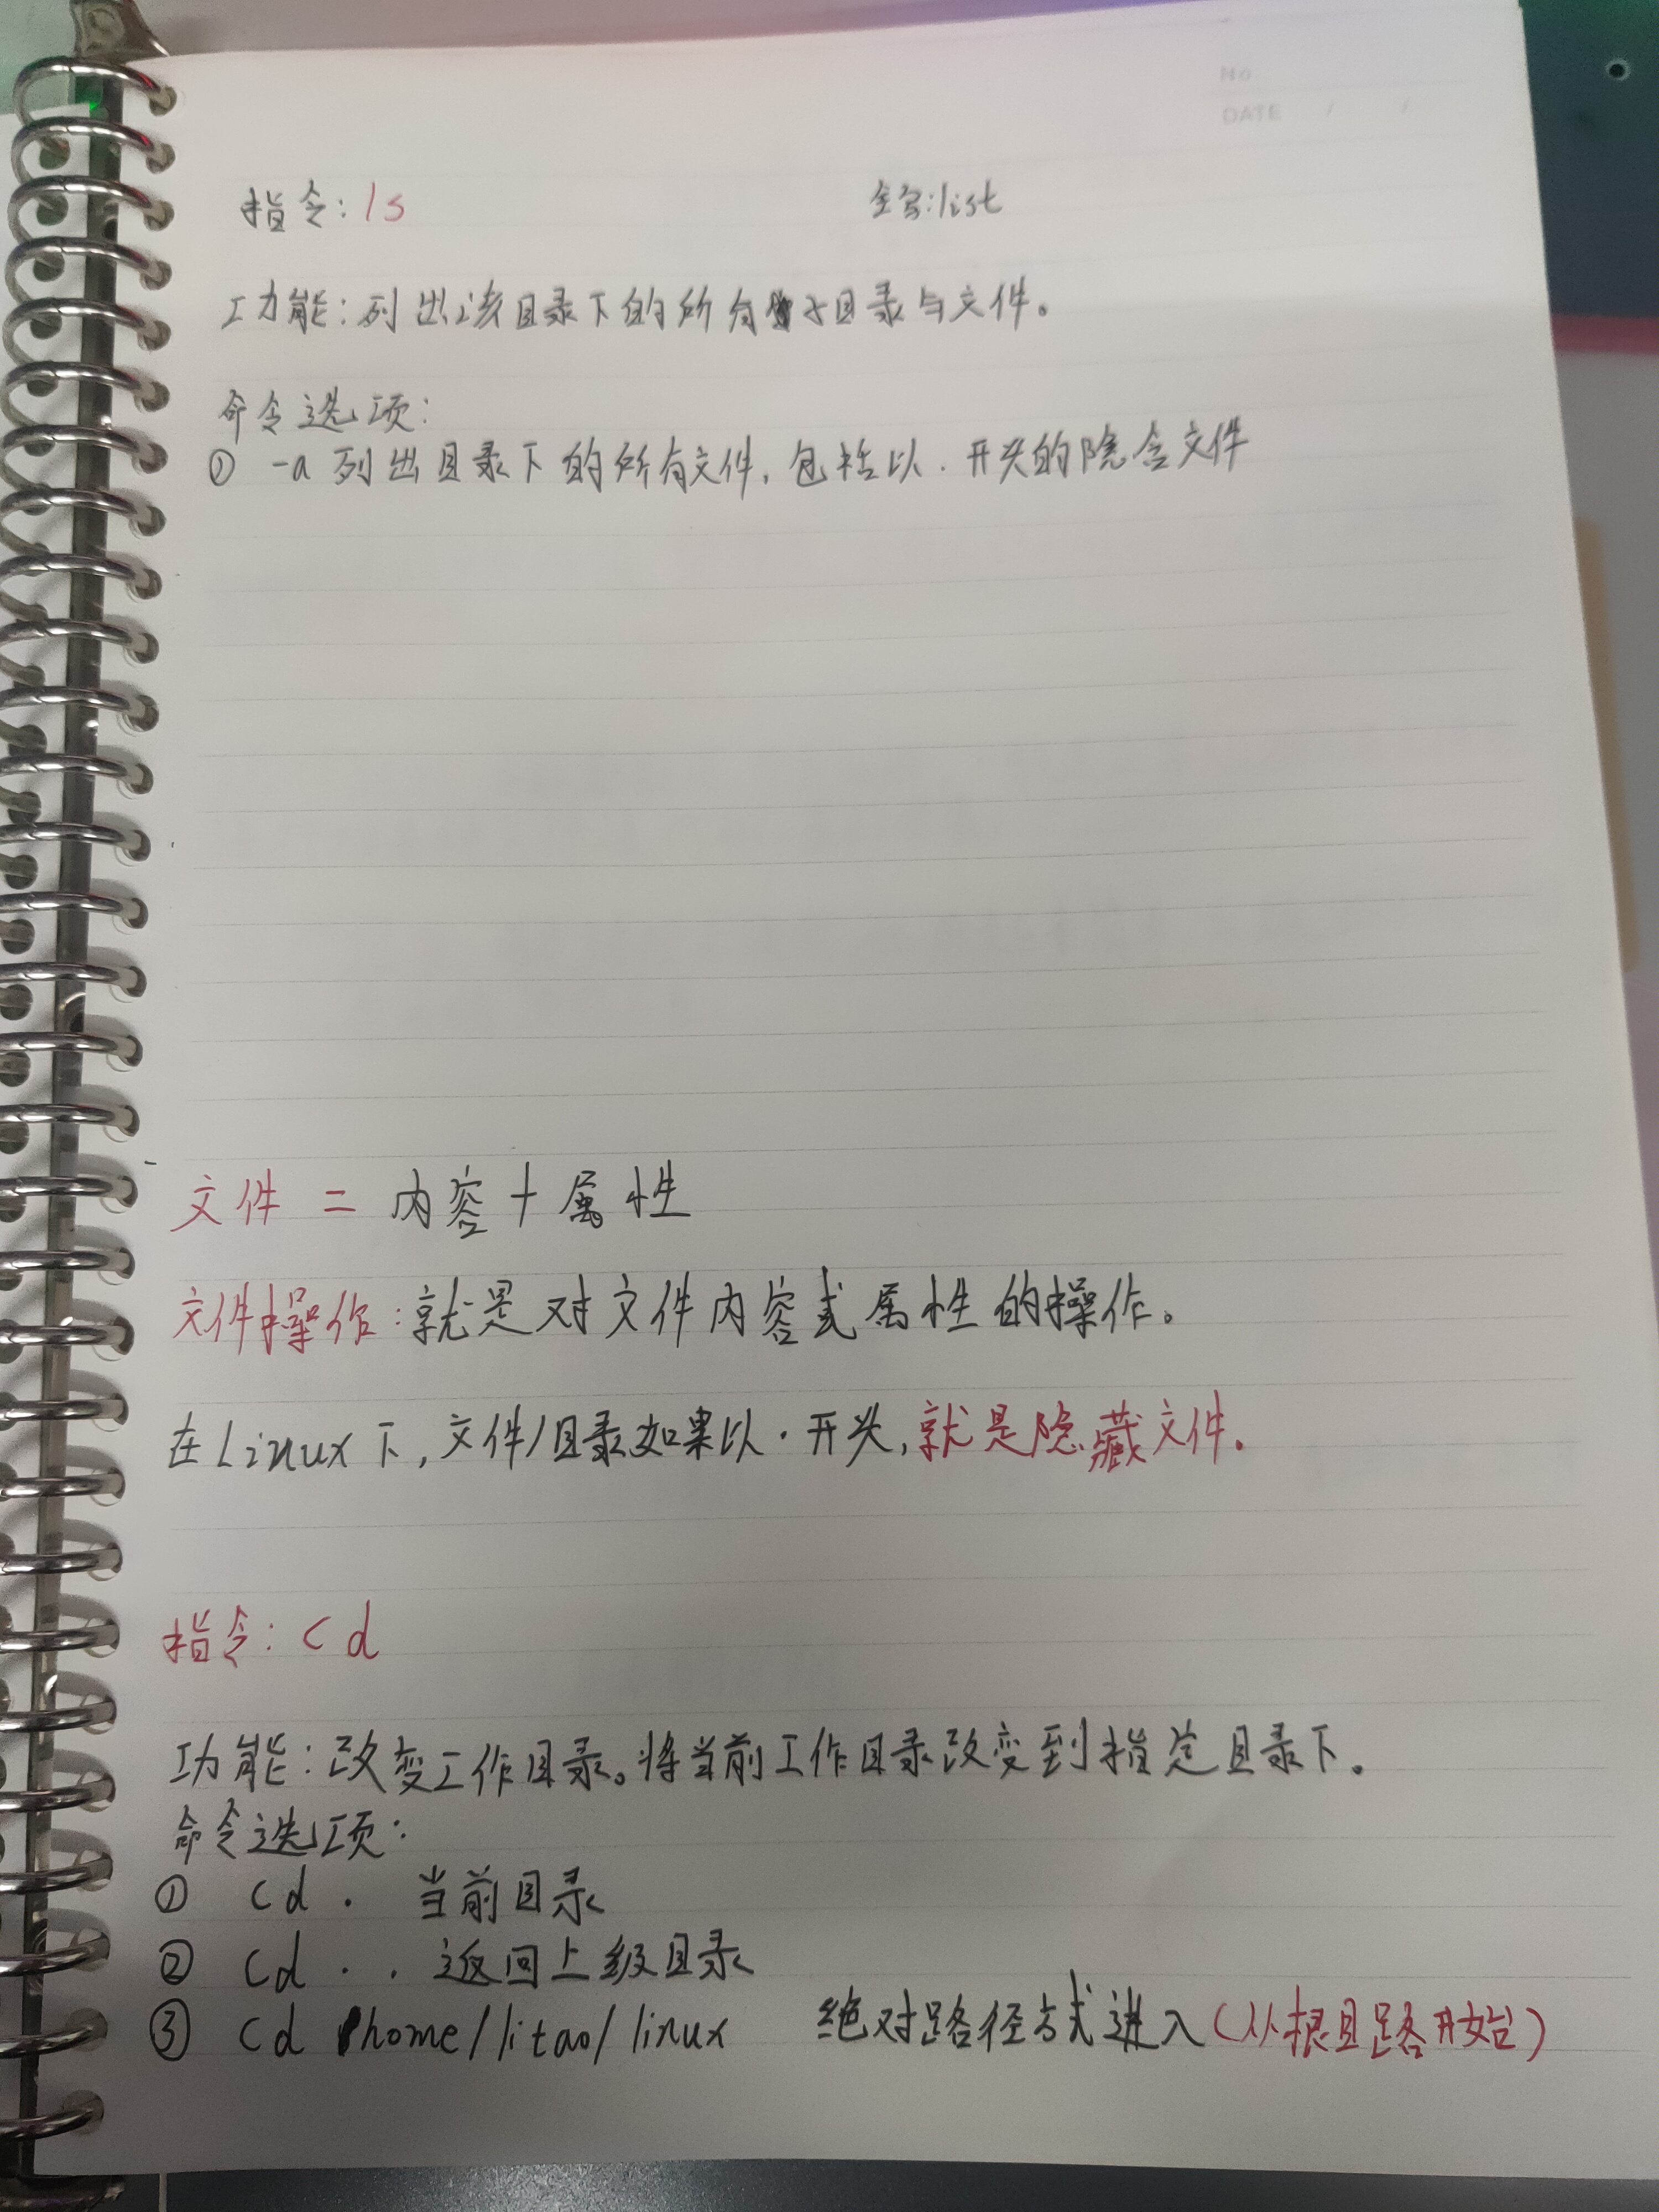 No.
DATE / /
指令: ls 全写:list
功能:列出该目录下的所有子目录与文件。
命令选项:
① -a 列出目录下的所有文件,包括以 . 开头的隐含文件
文件 = 内容 + 属性
文件操作:就是对文件内容或属性的操作。
在Linux下,文件/目录如果以 . 开头,就是隐藏文件。
指令: cd
功能:改变工作目录。将当前工作目录改变到指定目录下。
命令选项:
① cd . 当前目录
② cd . . 返回上级目录
③ cd /home/litao/linux 绝对路径方式进入(从根目路开始)